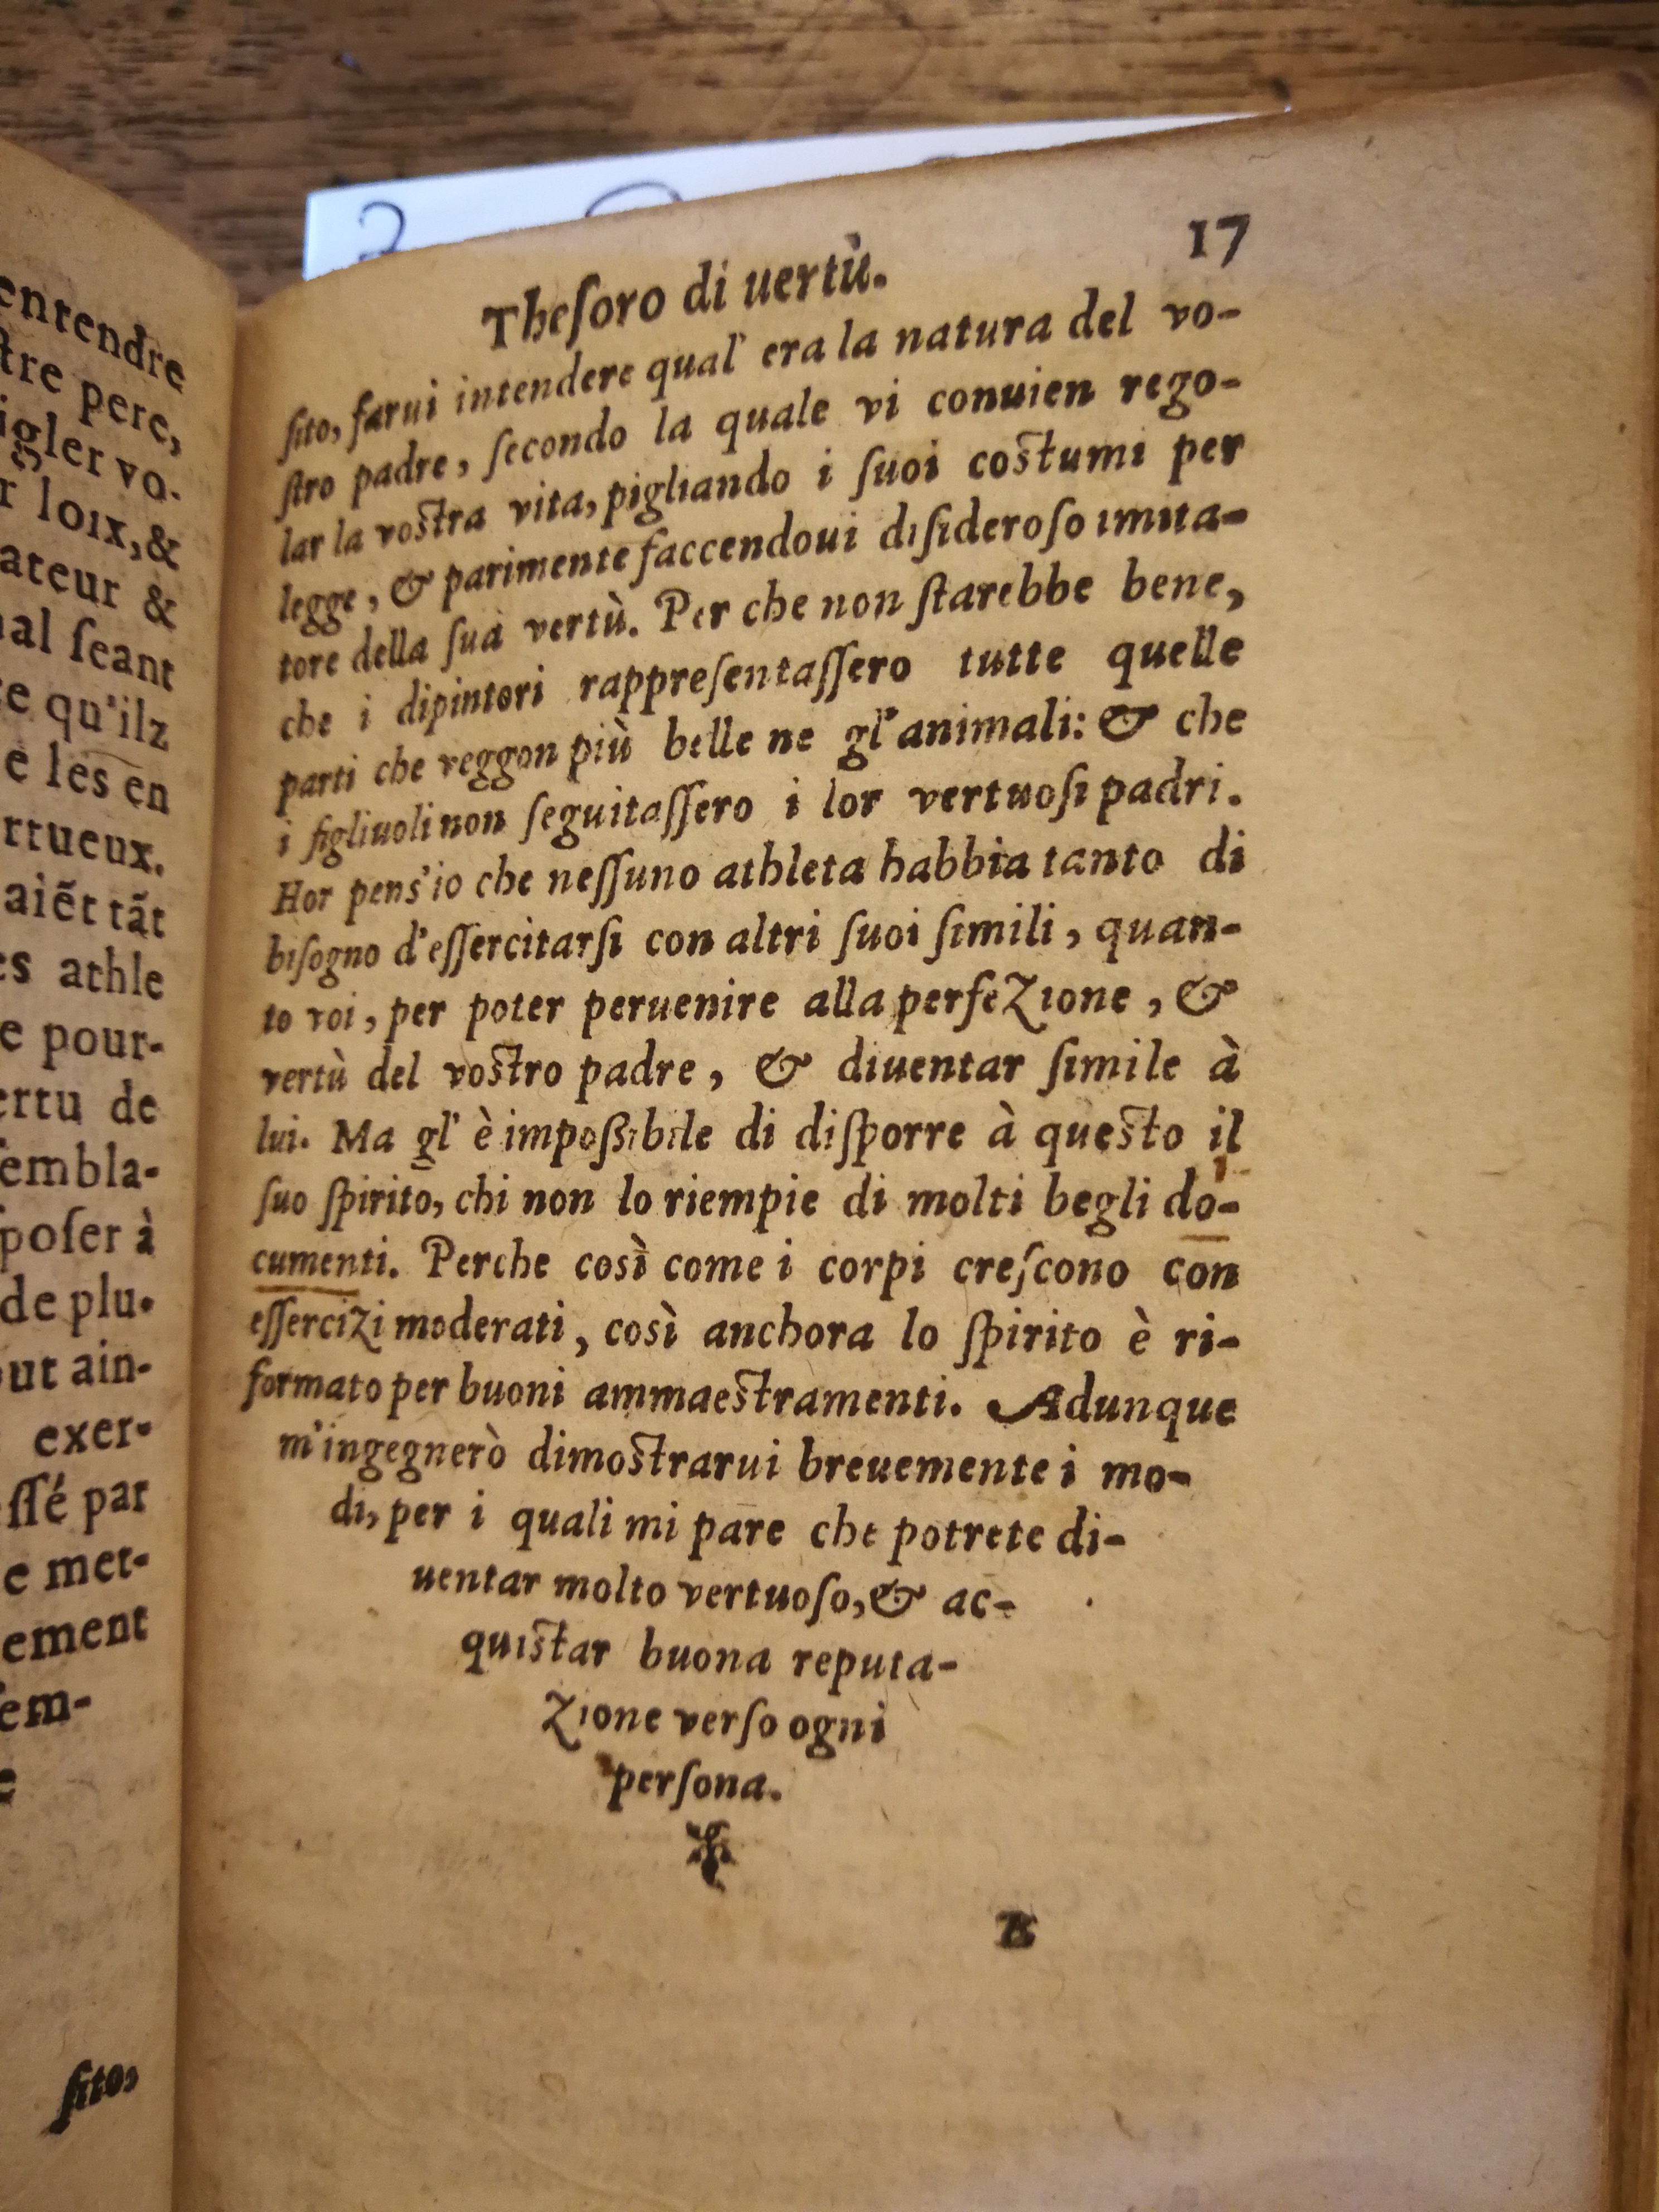 entendre
tre pere,
igler vo-
r loix, &
ateur &
al ſeant
e qu'ilz
e les en
rtueux.
aiẽt tãt
es athle
e pour-
ertu de
embla-
poſer à
de plu-
ut ain-
exer-
ſſé par
e met-
ement
em-
e
ſito,
2
17
Theſoro di uertù.
ſito, farui intendere qual' era la natura del vo-
ſtro padre, ſecondo la quale vi conuien rego-
lar la voſtra vita, pigliando i ſuoi coſtumi per
legge, & parimente faccendoui diſideroſo imita-
tore della ſua vertù. Per che non ſtarebbe bene,
che i dipintori rappreſentaſſero tutte quelle
parti che veggon più belle ne gl'animali: & che
i figliuoli non ſeguitaſſero i lor vertuoſi padri.
Hor pens'io che neſſuno athleta habbia tanto di
biſogno d'eſſercitarſi con altri ſuoi ſimili, quan-
to voi, per poter peruenire alla perfezione, &
vertù del voſtro padre, & diuentar ſimile à
lui. Ma gl' è impoßibile di diſporre à queſto il
ſuo ſpirito, chi non lo riempie di molti begli do-
cumenti. Perche così come i corpi creſcono con
eſſercizi moderati, così anchora lo ſpirito è ri-
formato per buoni ammaeſtramenti. Adunque
m'ingegnerò dimoſtrarui breuemente i mo-
di, per i quali mi pare che potrete di-
uentar molto vertuoſo, & ac-
quiſtar buona reputa-
zione verſo ogni
perſona.
B